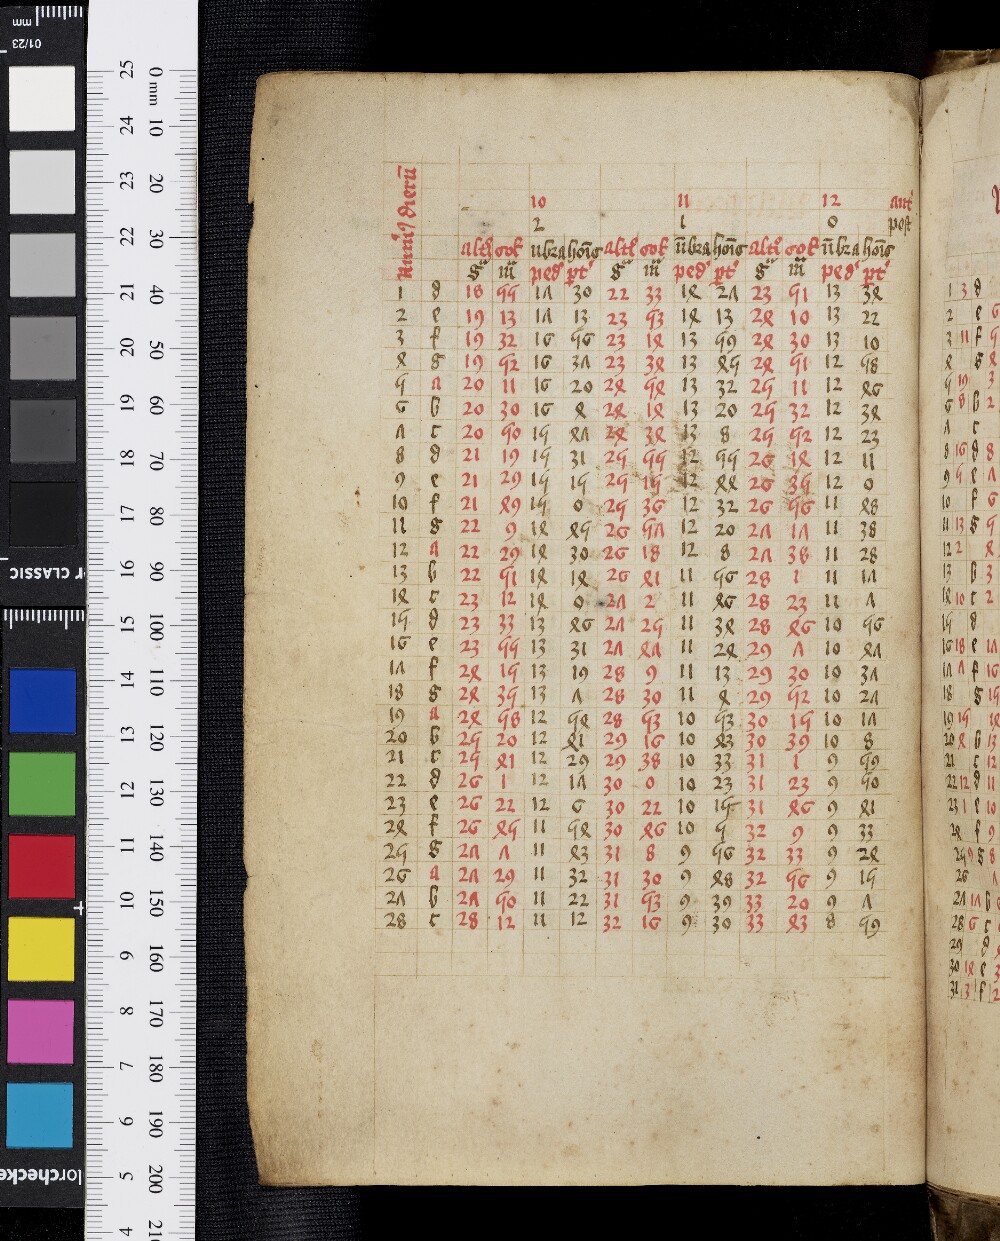 Numũs dierũ
10 11 12 ant
2 1 0 post
altº sol ũbra hõis altº sol ũbra hõis altº sol ũbra hõis
g m ped pt g m ped pt g m ped pt
1 d 18 55 17 30 22 33 14 27 23 51 13 34
2 e 19 13 17 13 23 53 14 13 24 10 13 22
3 f 19 32 16 56 23 14 13 59 24 30 13 10
4 g 19 52 16 37 23 34 13 45 24 51 12 58
5 a 20 11 16 20 24 54 13 32 25 11 12 46
6 b 20 30 16 4 24 14 13 20 25 32 12 34
7 c 20 50 15 47 24 34 13 8 25 52 12 23
8 d 21 19 15 31 25 55 12 55 26 14 12 11
9 e 21 29 15 15 25 15 12 44 26 35 12 0
10 f 21 49 15 0 25 36 12 32 26 56 11 48
11 g 22 9 14 45 26 57 12 20 27 17 11 38
12 a 22 29 14 30 26 18 12 8 27 38 11 28
13 b 22 51 14 14 26 41 11 56 28 1 11 17
14 c 23 12 14 0 27 2 11 46 28 23 11 7
15 d 23 33 13 46 27 25 11 34 28 46 10 56
16 e 23 55 13 31 27 47 11 24 29 7 10 47
17 f 24 15 13 19 28 9 11 13 29 30 10 37
18 g 24 35 13 7 28 30 11 4 29 52 10 27
19 a 24 58 12 54 28 53 10 53 30 15 10 17
20 b 25 20 12 41 29 16 10 43 30 39 10 8
21 c 25 41 12 29 29 38 10 33 31 1 9 59
22 d 26 1 12 17 30 0 10 23 31 23 9 50
23 e 26 22 12 6 30 22 10 15 31 46 9 41
24 f 26 45 11 54 30 46 10 5 32 9 9 33
25 g 27 7 11 43 31 8 9 56 32 33 9 24
26 a 27 29 11 32 31 30 9 48 32 56 9 15
27 b 27 50 11 22 31 53 9 39 33 20 9 7
28 c 28 12 11 12 32 16 9 30 33 43 8 59